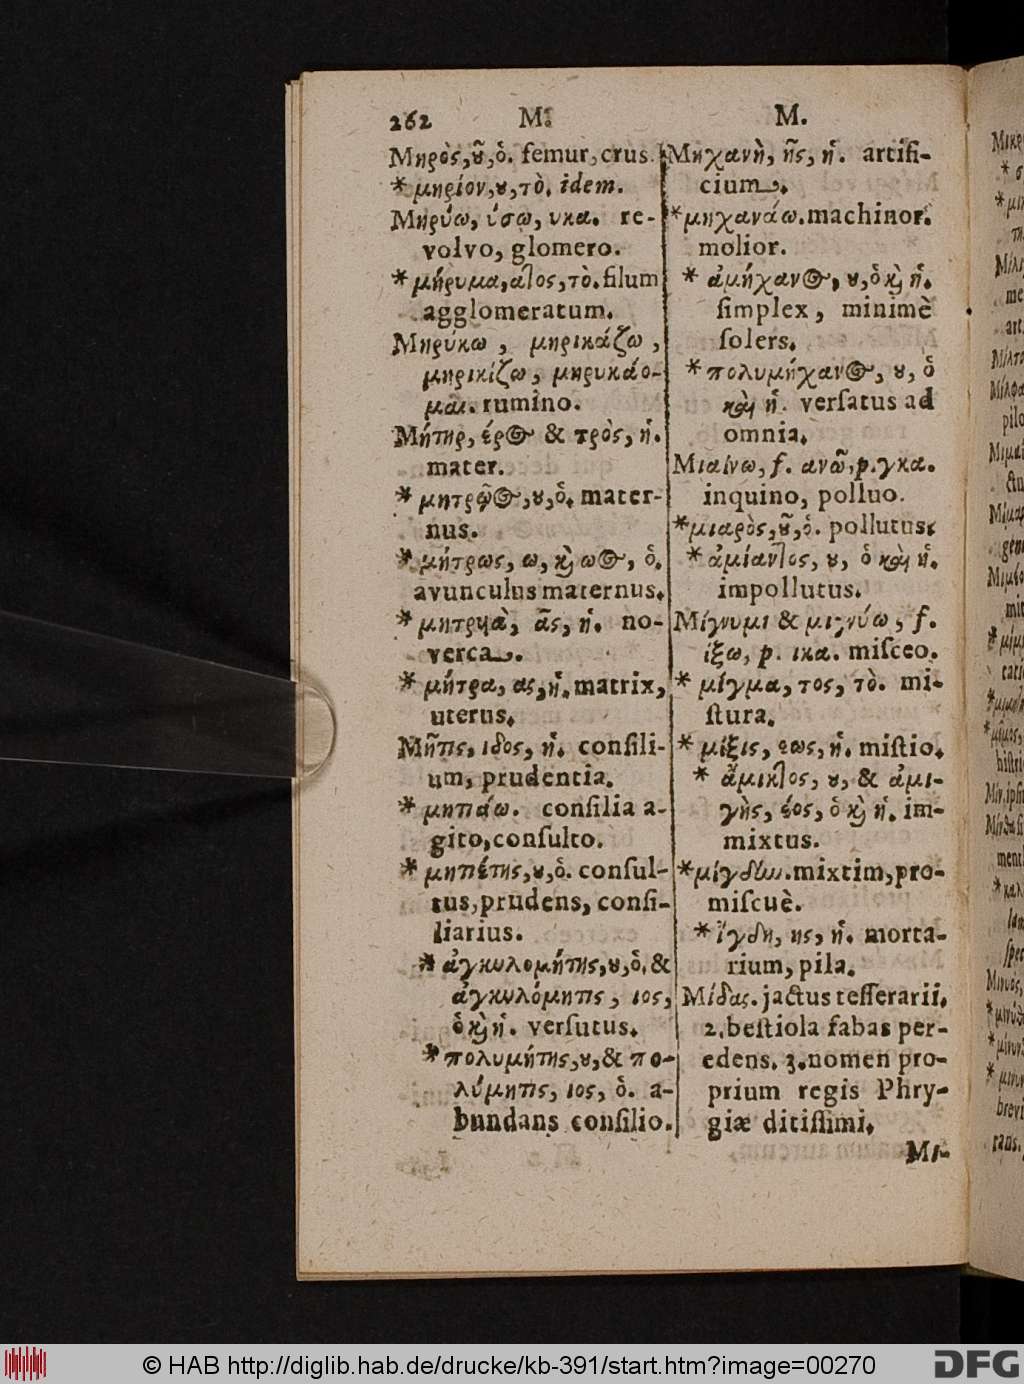 262 M. M.
Μηρὸς, ȣ͂, ὁ. femur, crus.
* μηρίον, ȣ, τὸ. idem.
Μηρύω, ύσω, υκα. re-
volvo, glomero.
* μήρυμα, αlος, τὸ. filum
agglomeratum.
Μηρύκω, μηρικάζω,
μηρικίζω, μηρυκάο-
μαι. rumino.
Μήτηρ, έρ@ & τρὸς, ἡ.
mater.
* μητρῷ@, ȣ, ὁ. mater-
nus.
* μήτρως, ω, κ̀ ω@, ὁ.
avunculus maternus.
* μητρυιὰ, ᾶς, ἡ. no-
verca.
* μήτρα, ας, ἡ. matrix,
uterus.
Μῆτις, ιδος, ἡ. conſili-
um, prudentia.
* μητιάω. conſilia a-
gito, conſulto.
* μητιέτης, ȣ, ὁ. conſul-
tus, prudens, conſi-
liarius.
* ἀγκυλομήτης, ȣ, ὁ. &
ἀγκυλόμητις, ιος,
ὁ κ̀ ἡ. verſutus.
* πολυμήτης, ȣ, & πο-
λύμητις, ιος, ὁ. a-
bundans conſilio.
Μηχανὴ, ῆς, ἡ. artifi-
cium.
* μηχανάω. machinor.
molior.
* ἀμήχαν@, ȣ, ὁ κ̀ ἡ.
ſimplex, minimè
ſolers.
* πολυμήχαν@, ȣ, ὁ
καὶ ἡ. verſatus ad
omnia.
Μιαίνω, f. ανῶ, p. γκα.
inquino, polluo.
* μιαρὸς, ȣ͂, ὁ. pollutus.
* ἀμίανlος, ȣ, ὁ καὶ ἡ.
impollutus.
Μίγνυμι & μιγνύω, f.
ίξω, p. ικα. miſceo.
* μίγμα, τος, τὸ. mi-
ſtura.
* μίξις, εως, ἡ. miſtio.
* ἄμικlος, ȣ, & ἀμι-
γὴς, έος, ὁ κ̀ ἡ. im-
mixtus.
* μίγδην. mixtim, pro-
miſcuè.
* ἴγδη, ης, ἡ. morta-
rium, pila.
Μίδας. jactus teſſerarii.
2. beſtiola fabas per-
edens. 3. nomen pro-
prium regis Phry-
giæ ditiſſimi.
Μι-
© HAB http://diglib.hab.de/drucke/kb-391/start.htm?image=00270
DFG